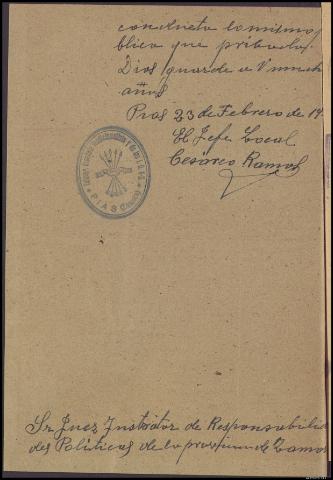 conducta lo mismo pú
blica que pribada.
Dios guarde a V much
años
Pias 23 de Febrero de 19
El Jefe Local
Cesáreo Ramos
PIAS (Zamora)
Sr Juez Instrutor de Responsabilida
des Políticas de la provincia de Zamora